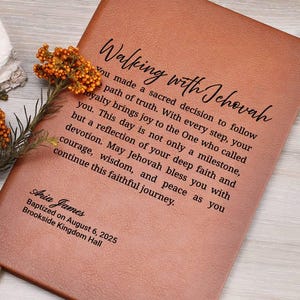 Walking with Jehovah
You made a sacred decision to follow
path of truth. With every step, your
loyalty brings joy to the One who called
you. This day is not only a milestone,
but a reflection of your deep faith and
devotion. May Jehovah bless you with
courage, wisdom, and peace as you
continue this faithful journey.
Aria James
Baptized on August 6, 2025
Brookside Kingdom Hall